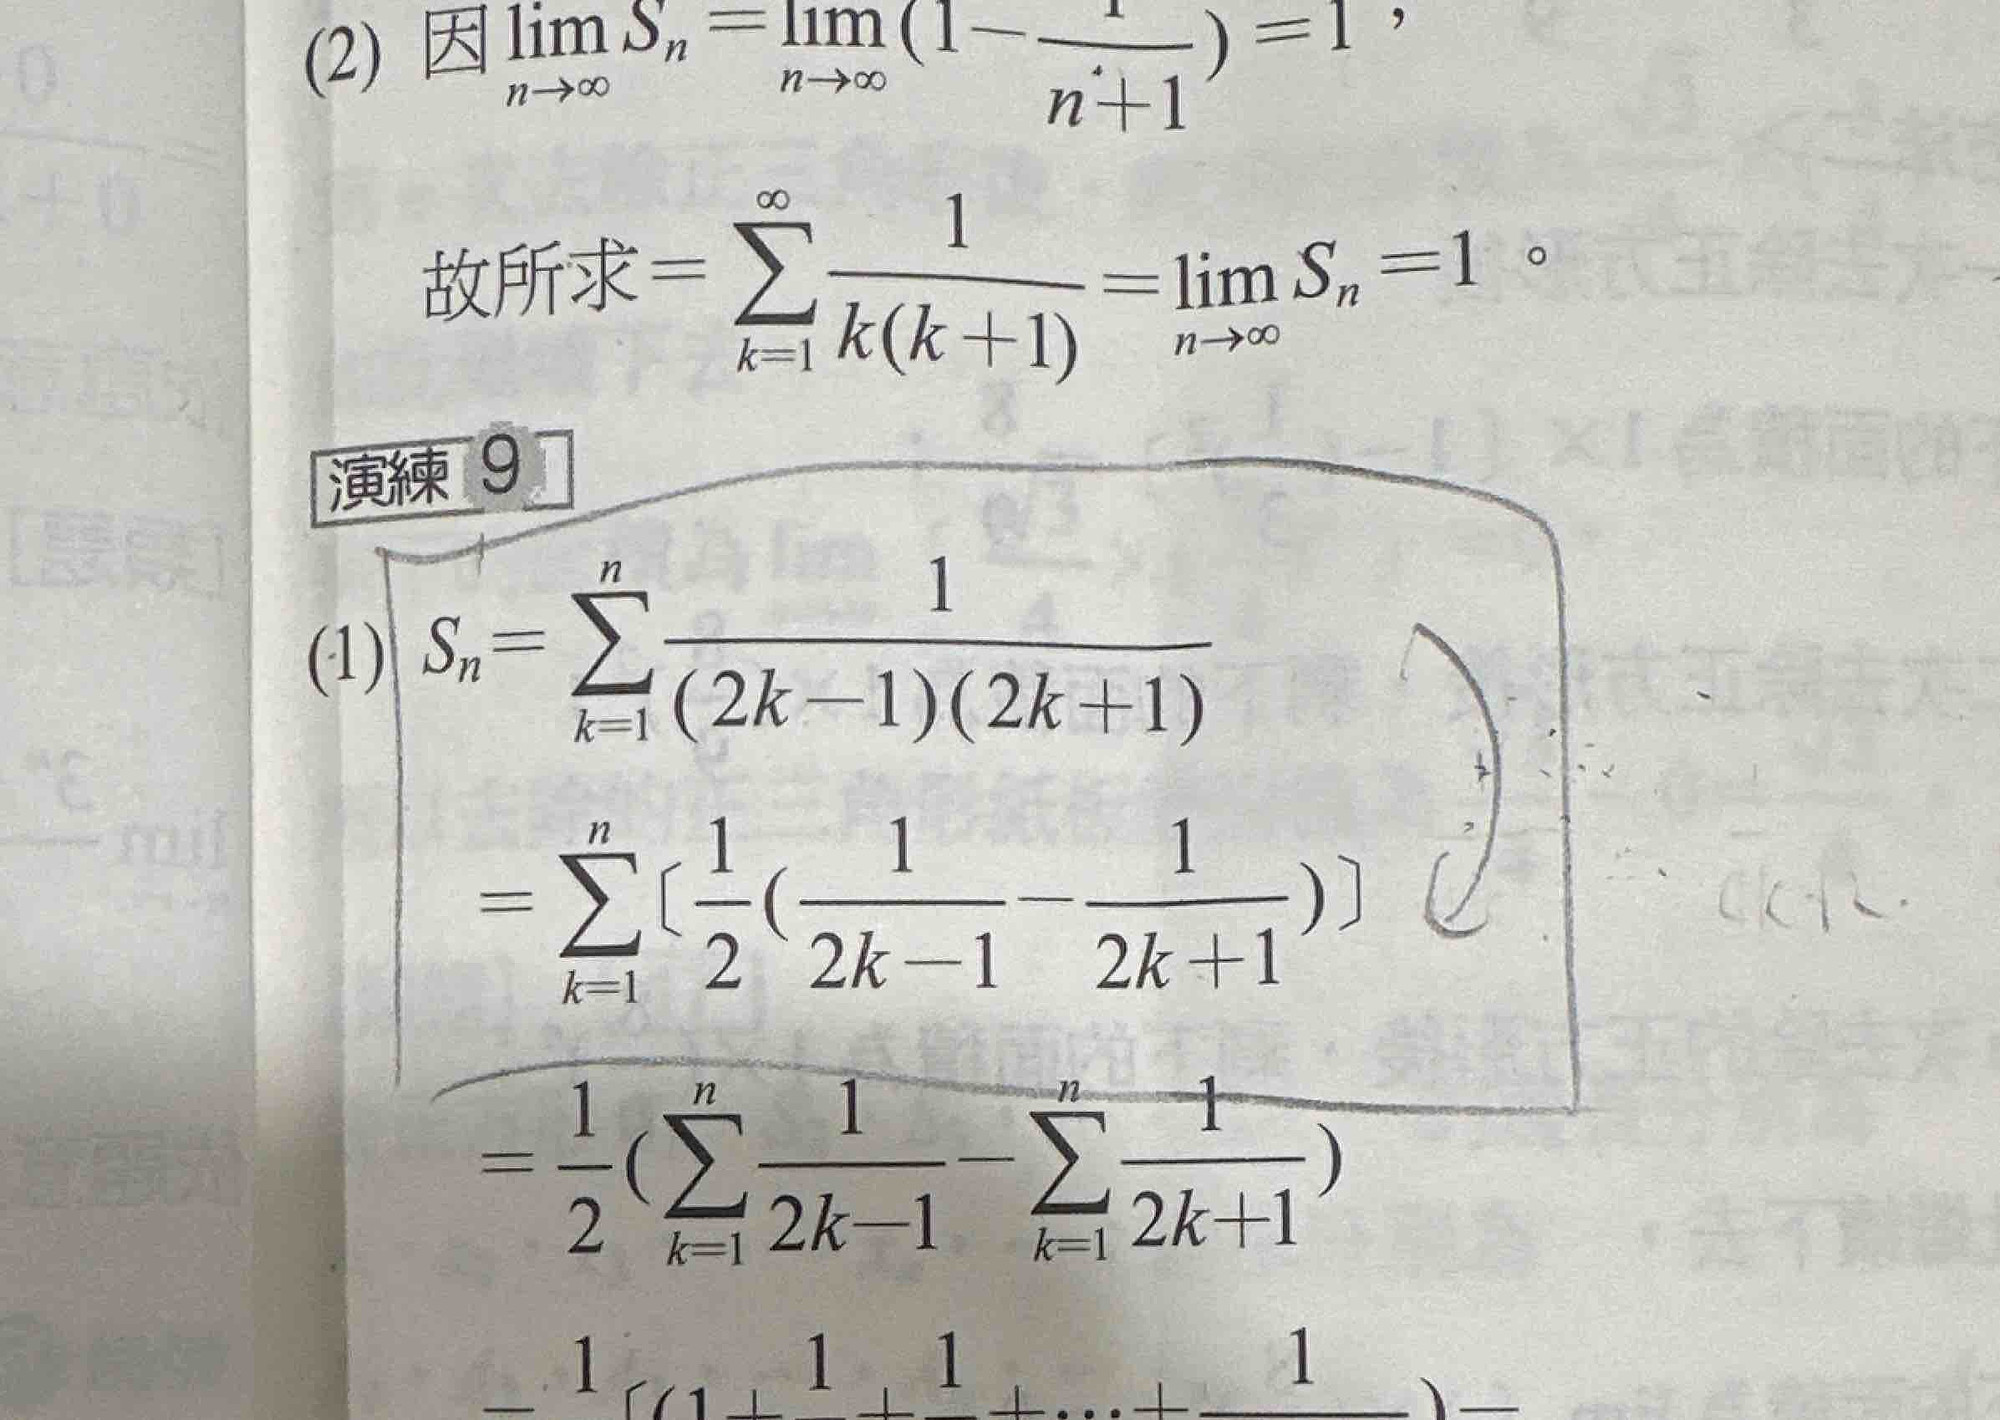 (2) 因 lim Sₙ = lim (1 − 1/(n+1)) = 1，
n→∞ n→∞
故所求 = ∑_{k=1}^{∞} 1/(k(k+1)) = lim_{n→∞} Sₙ = 1。
演練 9
(1) Sₙ = ∑_{k=1}^{n} 1/((2k−1)(2k+1))
= ∑_{k=1}^{n} 〔1/2(1/(2k−1) − 1/(2k+1))〕
= 1/2(∑_{k=1}^{n} 1/(2k−1) − ∑_{k=1}^{n} 1/(2k+1))